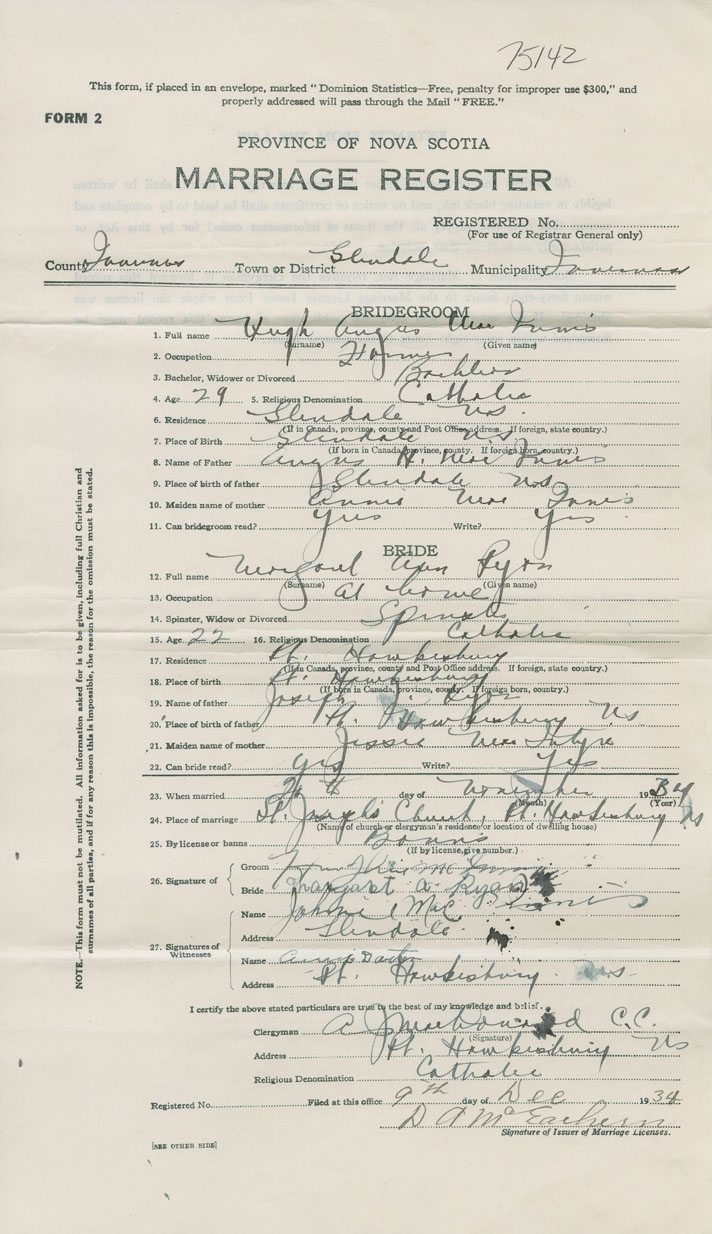 75142
This form, if placed in an envelope, marked "Dominion Statistics—Free, penalty for improper use $300," and
properly addressed will pass through the Mail "FREE."
FORM 2
PROVINCE OF NOVA SCOTIA
MARRIAGE REGISTER
REGISTERED No.
(For use of Registrar General only)
County Inverness Town or District Glendale Municipality Inverness
BRIDEGROOM
1. Full name Hugh Angus Mac Innis
(Surname) (Given name)
2. Occupation Farmer
3. Bachelor, Widower or Divorced Bachelor
4. Age 29 5. Religious Denomination Catholic
6. Residence Glendale N.S.
(If in Canada, province, county and Post Office address. If foreign, state country.)
7. Place of Birth Glendale N S
(If born in Canada, province, county. If foreign born, country.)
8. Name of Father Angus H. Mac Innis
9. Place of birth of father Glendale N.S
10. Maiden name of mother Annie Mac Innis
11. Can bridegroom read? Yes Write? Yes
BRIDE
12. Full name Margaret Ann Ryan
(Surname) (Given name)
13. Occupation At home
14. Spinster, Widow or Divorced Spinster
15. Age 22 16. Religious Denomination Catholic
17. Residence Pt. Hawkesbury
(If in Canada, province, county and Post Office address. If foreign, state country.)
18. Place of birth Pt. Hawkesbury
(If born in Canada, province, county. If foreign born, country.)
19. Name of father Joseph J. Ryan
20. Place of birth of father Pt. Hawkesbury NS
21. Maiden name of mother Jessie Mac Intyre
22. Can bride read? Yes Write? Yes
23. When married day of November 1934
(Month) (Year)
24. Place of marriage St. Joseph's Church, Pt. Hawkesbury NS
(Name of church or clergyman's residence or location of dwelling house)
25. By license or banns Banns
(If by license, give number.)
26. Signature of
Groom
Bride Margaret A Ryan
27. Signatures of Witnesses
Name Johnnie MacInnis
Address Glendale
Name
Address Pt. Hawkesbury N.S
I certify the above stated particulars are true to the best of my knowledge and belief.
Clergyman A J MacDonald C.C.
(Signature)
Address Pt. Hawkesbury NS
Religious Denomination Catholic
Registered No. Filed at this office 9th day of Dec 1934
D A McEachern
Signature of Issuer of Marriage Licenses.
[SEE OTHER SIDE]
NOTE.—This form must not be mutilated. All information asked for is to be given, including full Christian and
surnames of all parties, and if for any reason this is impossible, the reason for the omission must be stated.